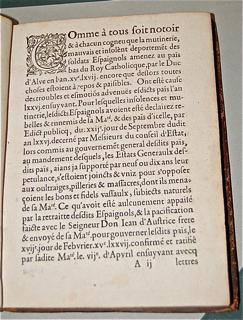 Comme à tous soit notoir
& à chacun cogneu que la mutinerie,
mauvais et insolent deportemés des
soldats Espaignols amenez au pais
bas du Roy Catholicque, par le Duc
d'Alve en l'an. xvᶜ. lxvij. encore que deslors toutes
choses estoient à repos & paisibles. Ont esté cause
des troubles et esmotiós advenues esdicts pais l'an
lxxvj. ensuyvant. Pour lesquelles insolences et mu-
tinerie, lesdicts Espaignols avoiēt esté declairez re-
belles & ennemis de sa Maᵗᵉ. & des pais d'icelle, par
Edict publicq, du. xxijᵉ. jour de Septembre dudit
an lxxvj. decerné par Messieurs du conseil d'Estat,
lors commis au gouvernemēt general desdits pais,
au mandement desquels, les Estats Generaulx des-
dits pais, aians ja supporté par neuf ou dix ans leur
petulance, s'estoient joincts & vniz pour s'opposer
aux oultraiges, pilleries & massacres, dont ils mena-
çoient les bons et fidels vassaulx, subiects naturels
de sa Maᵗᵉ. Ce qu'avoit esté aulcunement appaisé
par la retraitte desdits Espaignols, & la pacification
faicte avec le Seigneur Don Jean d'Austrice frere
& envoyé de sa Maᵗᵉ. pour gouverner lesdits pais, le
xvijᵉ. jour de Febvrier. xvᶜ. lxxvij. confirmé et ratifié
par sadite Maᵗᵉ. le. vijᵉ. d'Apvril ensuyvant avecq
A ij lettres